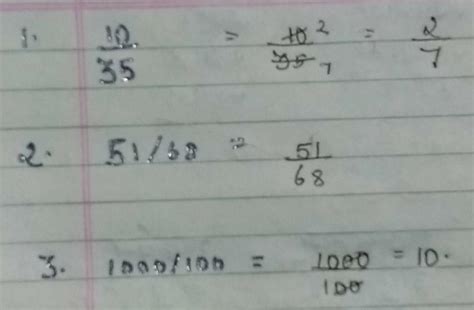 1. 10/35 = 10/35 2 7 = 2/7
2. 51/68 = 51/68
3. 1000/100 = 1000/100 = 10.